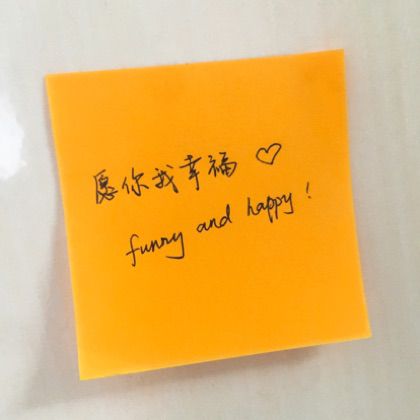 愿你我幸福 ♡
funny and happy!